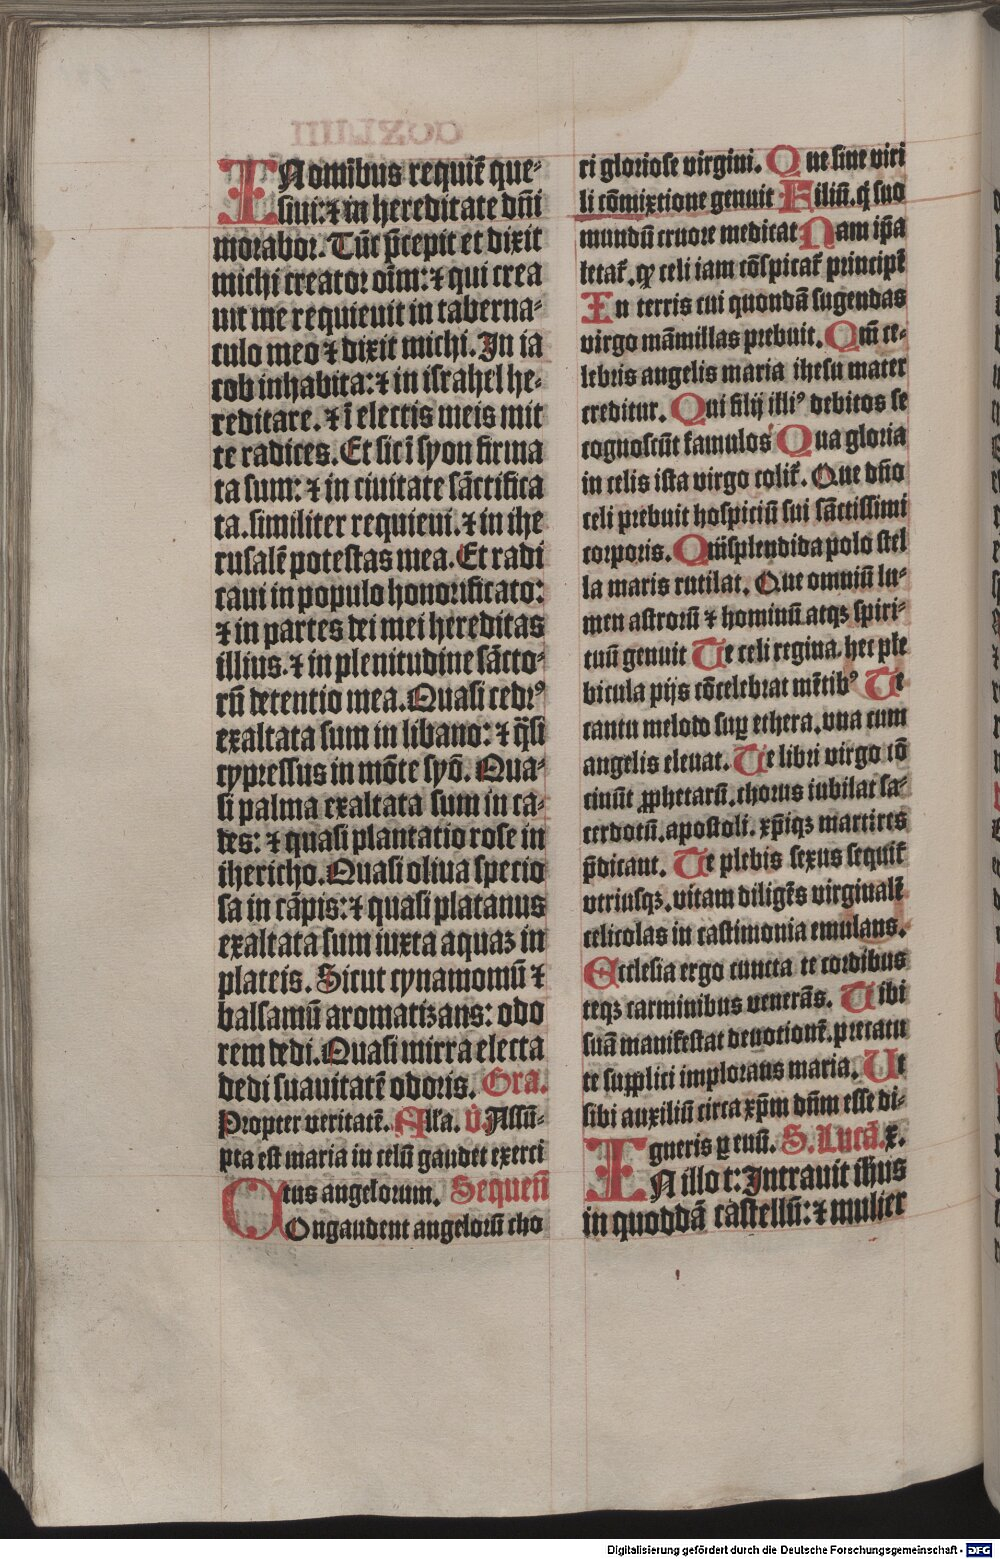 IN omĩbus requiẽ que⸗
siui: ⁊ in hereditate dñi
morabor. Tũc p̃cepit et dixit
michi creator oĩm: ⁊ qui crea
uit me requieuit in taberna⸗
culo meo ⁊ dixit michi. In ia
cob inhabita: ⁊ in israhel he⸗
reditare. ⁊ ĩ electis meis mit
te radices. Et sic ĩ syon firma
ta sum: ⁊ in ciuitate sãctifica
ta. similiter requieui. ⁊ in ihe
rusalẽ potestas mea. Et radi
caui in populo honorificato:
⁊ in partes dei mei hereditas
illius. ⁊ in plenitudine sãcto⸗
rũ detentio mea. Quasi cedrꝰ
exaltata sum in libano: ⁊ q̃si
cypressus in mõte syõ. Qua⸗
si palma exaltata sum in ca⸗
des: ⁊ quasi plantatio rose in
ihericho. Quasi oliua specio
sa in cãpis: ⁊ quasi platanus
exaltata sum iuxta aquaz in
plateis. Sicut cynamomũ ⁊
balsamũ aromatizans: odo
rem dedi. Quasi mirra electa
dedi suauitatẽ odoris. Gra.
Propter veritatẽ. Alľa. v̕. Assũ⸗
pta est maria in celũ gaudet exerci
tus angelorum. Sequeñ
COngaudent angelorũ cho
ri gloriose virgini. Que sine viri
li cõmixtione genuit Filiũ. q̕ suo
mundũ cruore medicat Nam ip̃a
letať. ꝙ celi iam cõspicať principẽ
In terris cui quondã sugendas
virgo mãmillas prebuit. Qm̃ ce⸗
lebris angelis maria ihesu mater
creditur. Qui filij illiꝰ debitos se
cognoscũt famulos Qua gloria
in celis ista virgo coliť. Que dño
celi prebuit hospiciũ sui sãctissimi
corporis. Qm̃ splendida polo stel
la maris rutilat. Que omniũ lu⸗
men astrorũ ⁊ hominũ atqꝫ spiri⸗
tuũ genuit Te celi regina. hec ple
bicula pijs cõcelebrat mẽtibꝰ Te
cantu melodo suꝑ ethera. vna cum
angelis eleuat. Te libri virgo cõ
cinũt ꝓphetarũ. chorus iubilat sa⸗
cerdotũ. apostoli. xp̃iqꝫ martires
p̃dicant. Te plebis sexus sequiť
vtriusqꝫ. vitam diligẽs virginalẽ
celicolas in castimonia emulans.
Ecclesia ergo cuncta te cordibus
teqꝫ carminibus venerãs. Tibi
suã manifestat deuotionẽ. precatu
te supplici implorans maria. Ut
sibi auxiliũ circa xp̃m dñm esse di⸗
gneris ꝑ euũ. S. Lucã. x.
IN illo t: Intrauit ih̃us
in quoddã castellũ: ⁊ mulier
Digitalisierung gefördert durch die Deutsche Forschungsgemeinschaft - DFG